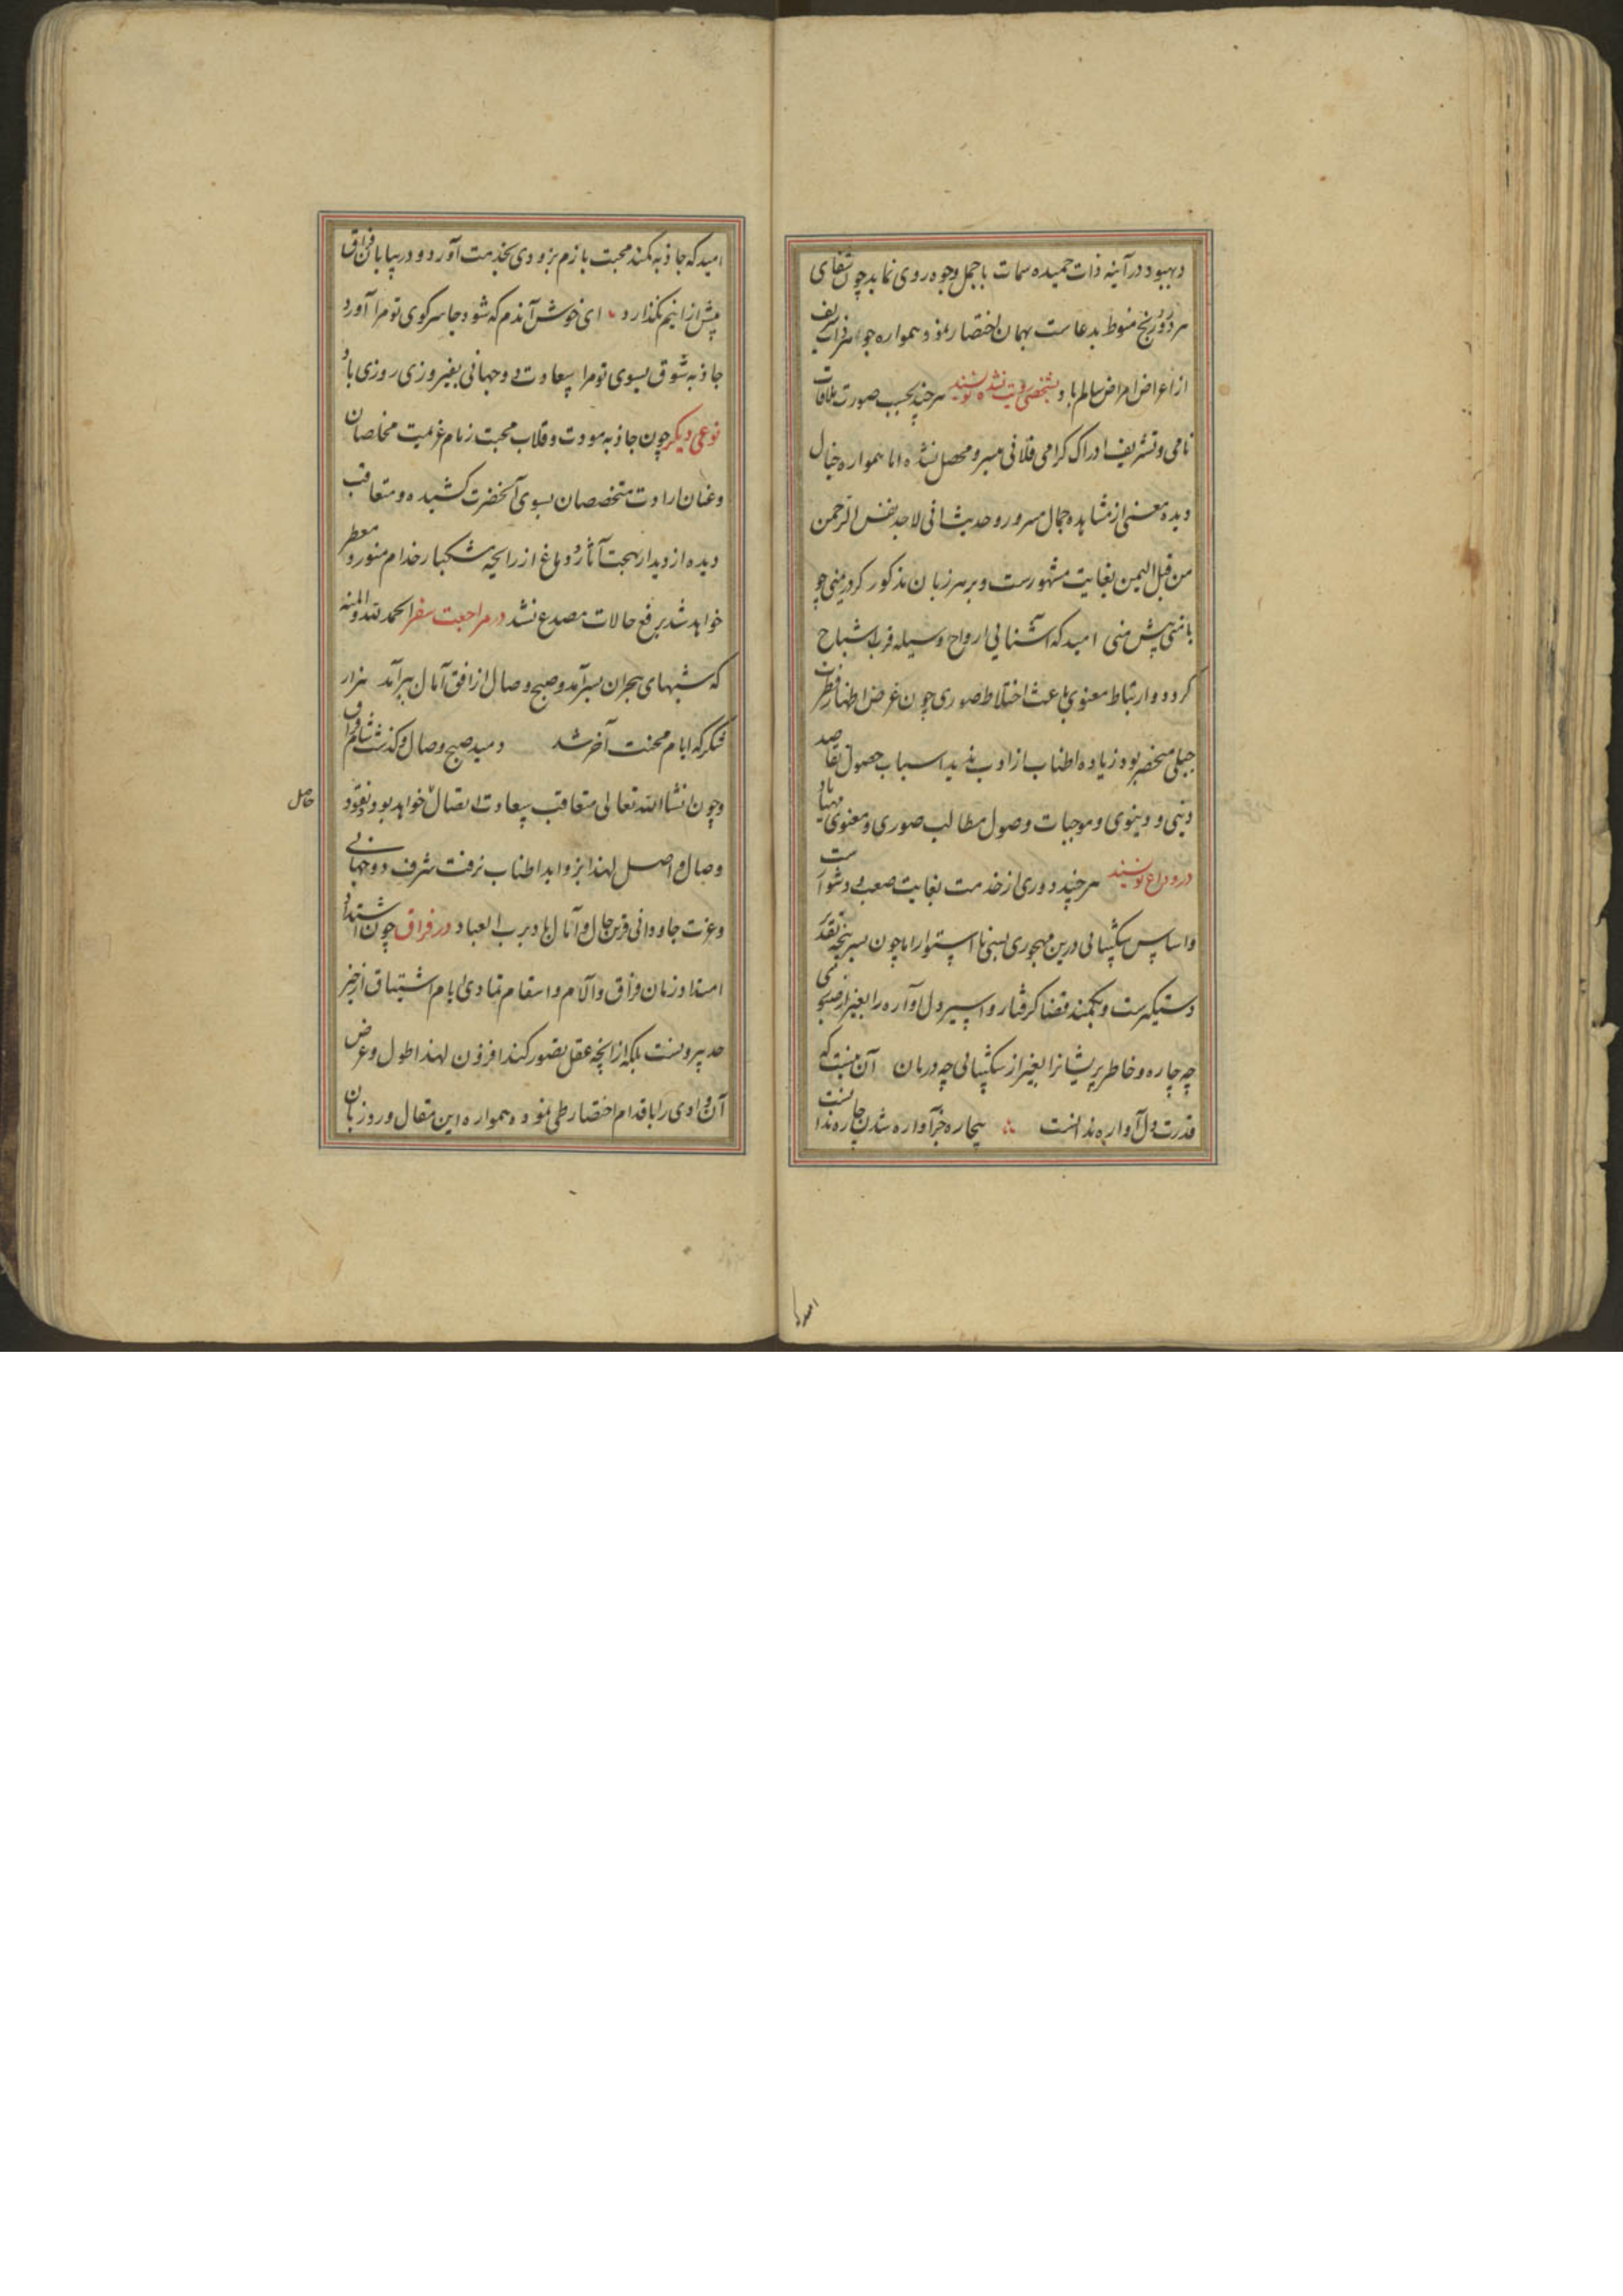 دبهبود در آینه ذات حمیده سمات باجمل وجوه روی نماید چون شفای
هر درد و رنج منوط بدعاست بهمان اختصار نمود همواره جوهر ذات شریف
از اعراض امراض سالم باد بشخصی که رویت نشده نویسند هر چند بحسب صورت ملاقات
نامی و تشریف ادراک گرامی فلانی میسر و محصل نشده اما همواره خیال
دیده معنی از مشاهده جمال مسرور و حدیث انی لاجد نفس الرحمن
من قبل الیمن بغایت مشهورست و بر هر زبان مذکور گر در یمنی چو
با منی پیش منی امید که آشنایی ارواح وسیله قرب اشباح
گردد و ارتباط معنوی باعث اختلاط صوری چون غرض اظهار فطرت
جبلی منحصر بود زیاده اطناب از ادب ندید اسباب حصول مقاصد
دینی و دنیوی و موجبات وصول مطالب صوری و معنوی مهیا باد
در وداع نویسند هر چند دوری از خدمت بغایت صعب و دشوار است
و اساس شکیبایی درین مهجوری بسی نا استوار اما چون سرپنجه تقدیر
دستگیرست و بکمند قضا گرفتار و اسیر دل آواره را بغیر از صبوری
چه چاره و خاطر پریشانرا بغیر از شکیبایی چه درمان آن نیست که
قدرت دل آواره ندانست بیچاره جز آواره شدن چاره ندانست
امید که
امید که جاذبه کمند محبت بازم بزودی بخدمت آورد و در بیابان فراق
بیش ازینم نگذارد ای خوش آندم که شود جا سر کوی تو مرا آورد
جاذبه شوق بسوی تو مرا سعادت دو جهانی بفیروزی روزی باد
نوعی دیگر چون جاذبه مودت و قلاب محبت زمام عزیمت مخلصان
و عنان ارادت متخصصان بسوی آنحضرت کشیده و متعاقب
دیده از دیدار بهجت آثار و دماغ از رایحه مشکبار خدام منور و معطر
خواهد شد برفع حالات مصدع نشد در مراجعت سفر الحمد لله و المنه
که شبهای هجران بسر آمد و صبح وصال از افق آمال برآمد هزار
شکر که ایام محنت آخر شد دمید صبح وصال و گذشت شام فراق
و چون انشاالله تعالی متعاقب سعادت اتصال خواهد بود و نقود
حاصل
وصال و اصل لهذا بزواید اطناب نرفت شرف دو جهانی
و عزت جاودانی قرین حال و آمال باد برب العباد در فراق چون اشتداد
امتداد زمان فراق و آلام و اسقام تمادی ایام اشتیاق از حیز
حد بیرونست بلکه از آنچه عقل تصور کند افزون لهذا طول و عرض
آن وادی را باقدام اختصار طی نمود و همواره این مقال ورد زبان